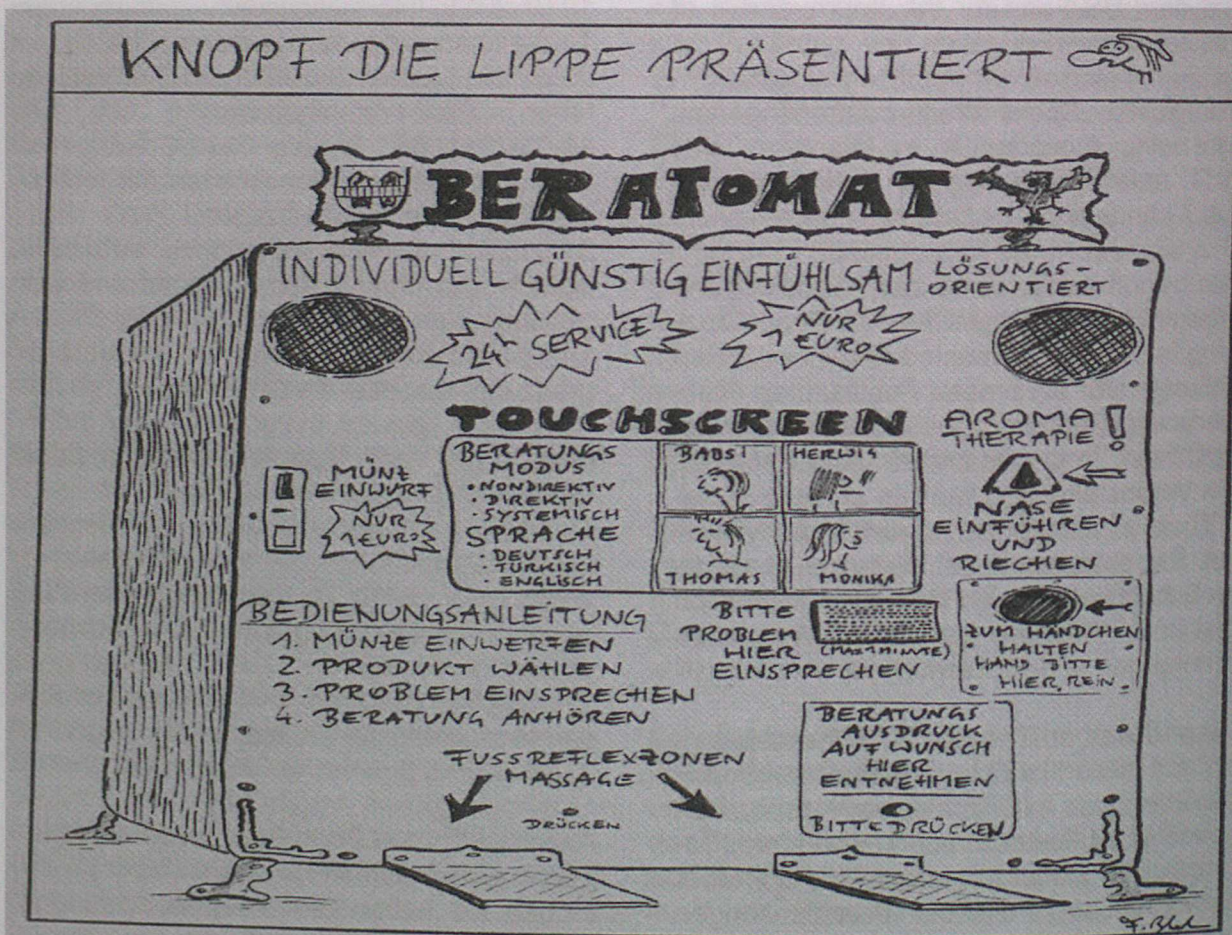 KNOPF DIE LIPPE PRÄSENTIERT
BERATOMAT
INDIVIDUELL GÜNSTIG EINFÜHLSAM LÖSUNGS-
ORIENTIERT
24h SERVICE
NUR
1 EURO
TOUCHSCREEN
MÜNZ
EINWURF
NUR
1 EURO
BERATUNGS
MODUS
• NONDIREKTIV
• DIREKTIV
• SYSTEMISCH
SPRACHE
• DEUTSCH
• TÜRKISCH
• ENGLISCH
BABSI
HERWIG
THOMAS
MONIKA
AROMA
THERAPIE!
NASE
EINFÜHREN
UND
RIECHEN
BEDIENUNGSANLEITUNG
1. MÜNZE EINWERFEN
2. PRODUKT WÄHLEN
3. PROBLEM EINSPRECHEN
4. BERATUNG ANHÖREN
BITTE
PROBLEM
HIER (MAX 1 MINUTE)
EINSPRECHEN
ZUM HÄNDCHEN
HALTEN
HAND BITTE
HIER REIN
FUSSREFLEXZONEN
MASSAGE
DRÜCKEN
BERATUNGS
AUSDRUCK
AUF WUNSCH
HIER
ENTNEHMEN
BITTE DRÜCKEN